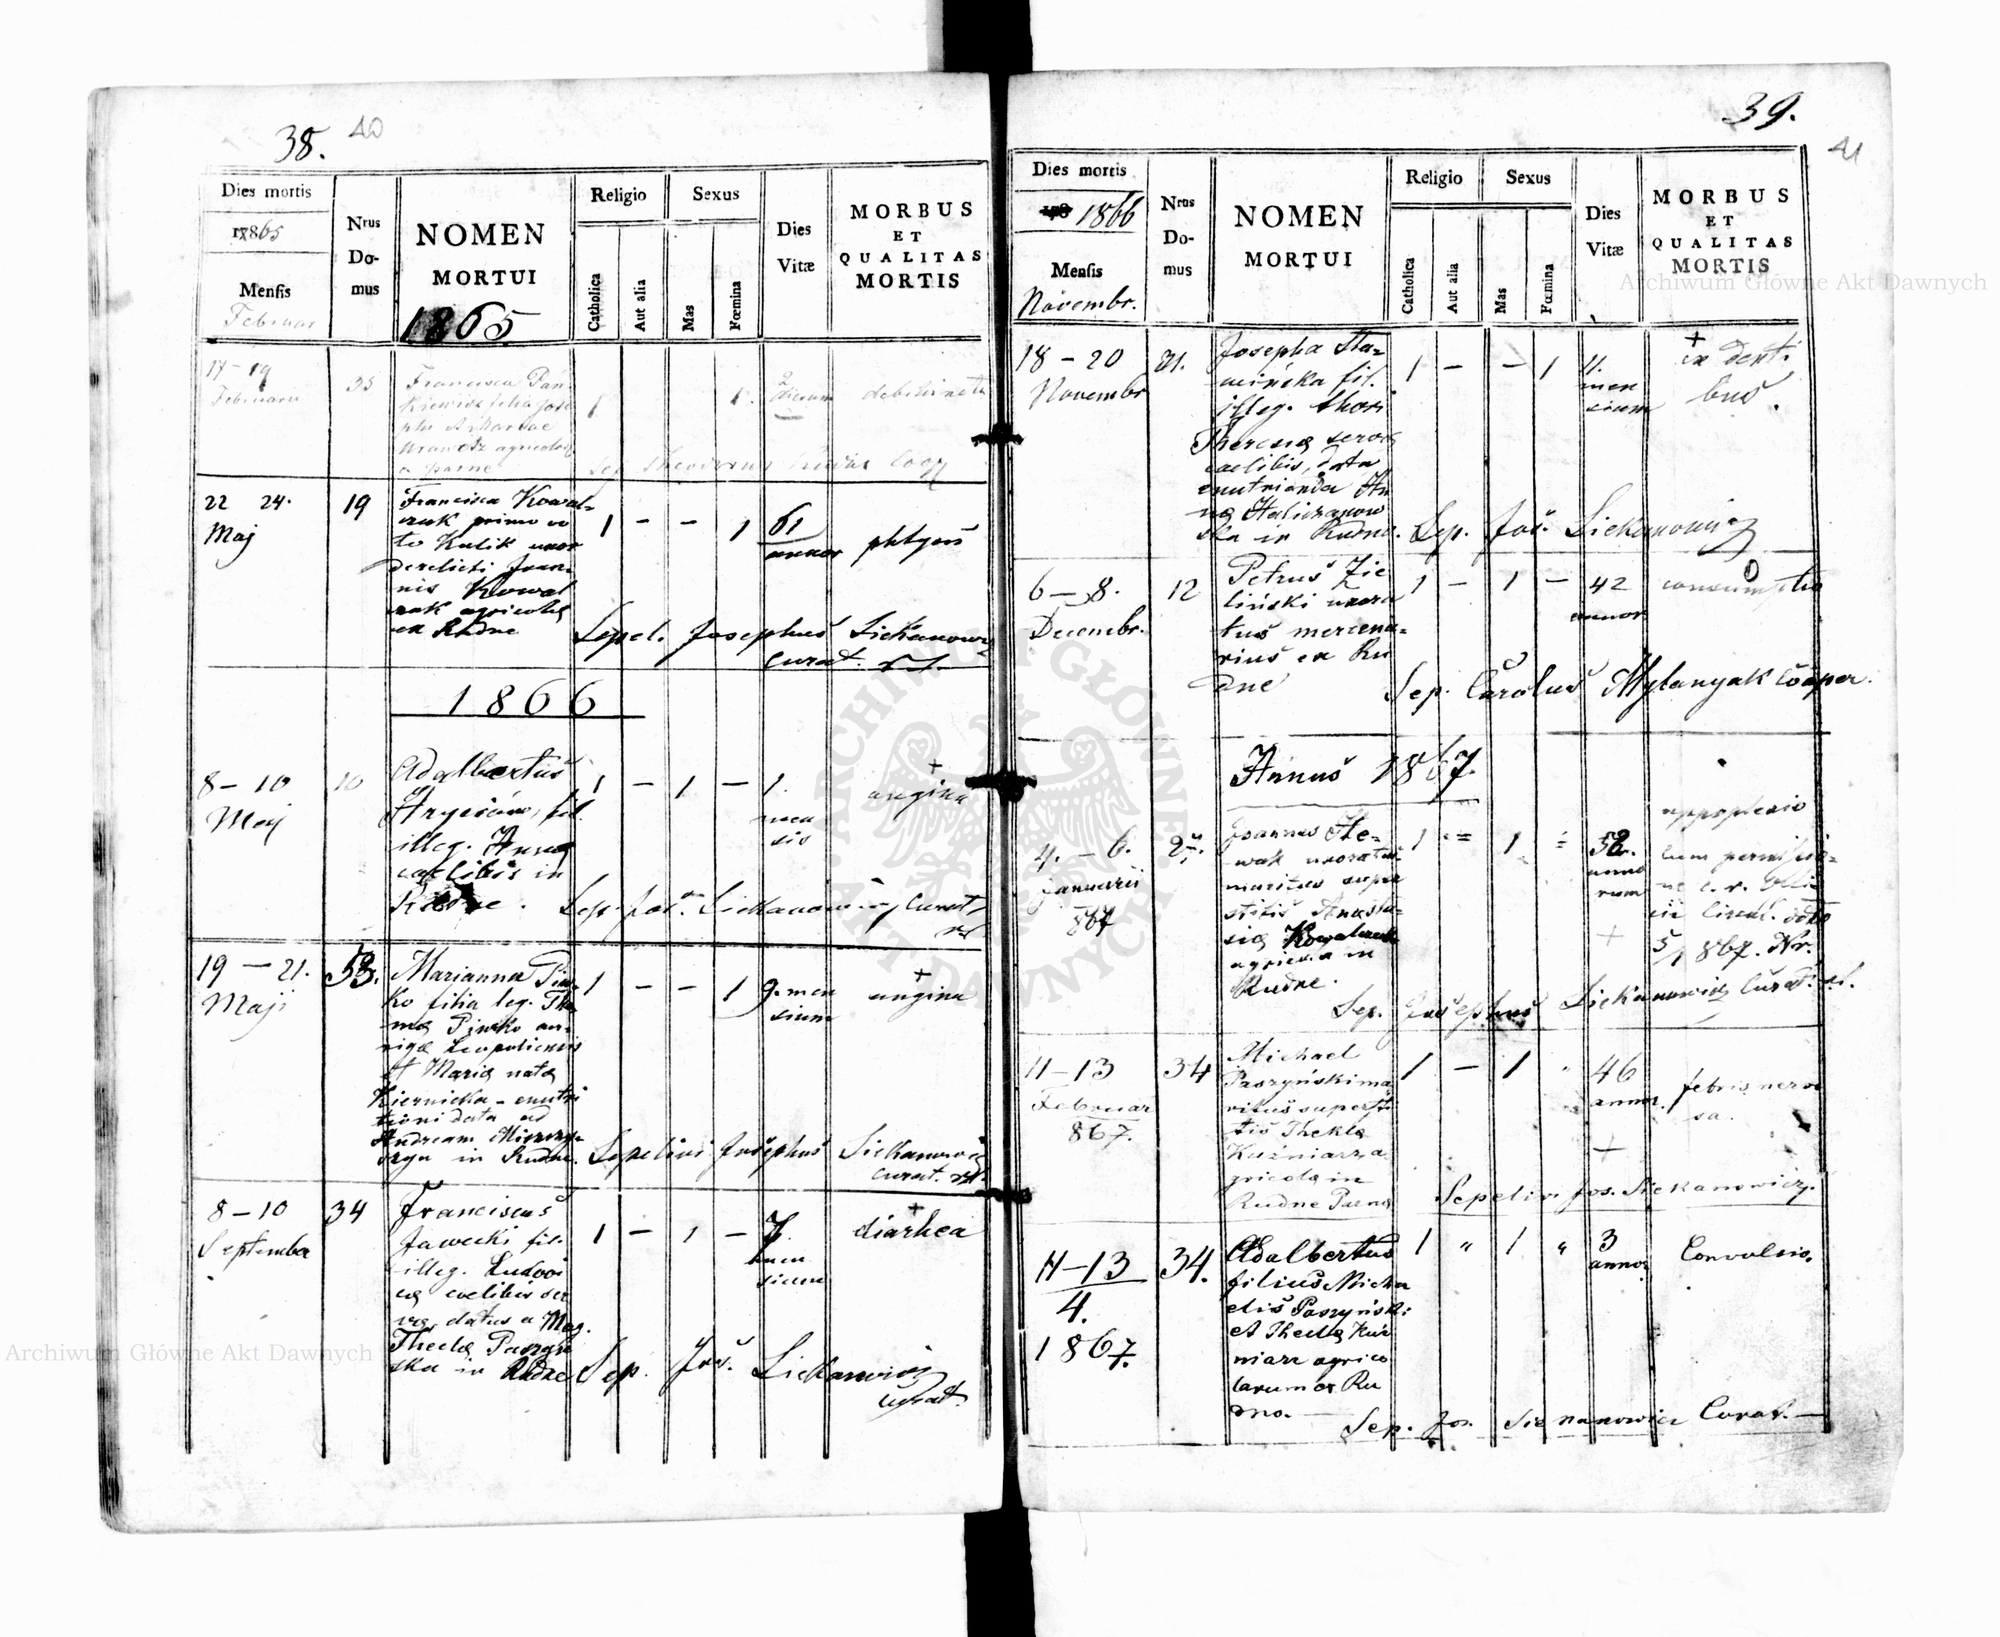 38.
40
Dies mortis
1865
Mensis
Februar
Nrus
Do-
mus
NOMEN
MORTUI
1865
Religio
Catholica
Aut alia
Sexus
Mas
Fœmina
Dies
Vitæ
MORBUS
ET
QUALITAS
MORTIS
17-19
Februarii
35
Francisca Pań
kiewicz filia Jose
phi et Mariae
agricola
1
1.
2
dierum
debilitate
Sep. Theodorus Coop
22 24.
Maj
19
Francisca Kowal-
czuk primo vo
to Kulik uxor
derelicti Joan-
nis Kowal
czuk agricolæ
ex Rudne
1 - - 1
61
annor
phtysis
Sepel. Josephus Siekanowicz
curat.
1866
8-10
Maj
10
Adalbertus
fil.
illeg. Annæ
cælibis in
Rudne.
1 - 1 -
1.
men
sis
+
angina
Sep. Jos. Siekanowicz Curat.
19-21.
Maji
53.
Marianna Pin-
ko filia leg. Tho
mæ Pinko au-
rigæ Leopoliensis
et Mariæ natæ
Kiernicka - enutri
tioni data ad
Andream
in Rudne.
1 - - 1
9. men
sium
+
angina
Sepelivi Josephus Siekanowicz
curat.
8-10
September
34
Franciscus
Jawecki fil.
illeg. Ludovi
cæ cælibis ser
væ, datus a Mag.
Theclæ Paszyń
ska in Rudne
1 - 1 -
7.
men
sium
+
diarhea
Sep. Jos. Siekanowicz
curat.
39.
41
Dies mortis
1866
Mensis
Novembr.
Nrus
Do-
mus
NOMEN
MORTUI
Religio
Catholica
Aut alia
Sexus
Mas
Fœmina
Dies
Vitæ
MORBUS
ET
QUALITAS
MORTIS
18-20
Novembr
21.
Josepha Sta-
fil.
illeg. thori
Theresiæ servæ
caelibis, data
enutrienda An
næ Haliczanow
ska in Rudno.
1 - - 1
11.
men
sium
+
ex denti
bus.
Sep. Jos. Siekanowicz
6-8.
Decembr.
12
Petrus Zie
liński uxora
tus mercena-
rius ex Ru
dne
1 - 1 -
42
annor
consumptio
Sep. Carolus Mylanyak Cooper.
Annus 1867.
4. - 6.
Januarii
867
Joannes
uxoratus
maritus super
stitis Anasta-
siæ Kowalczuk
agricola in
Rudne.
1 1
58.
anno
rum
appoplexio
cum permissio-
ne c. r.
cii Circul. ddto
5/1 867. Nr.
+
Sep. Josephus Siekanowicz Curat.
11-13
Februar
867.
34
Michael
Paszyński ma
ritus supersti
tis Theklæ
Kuźniarz a
gricola in
Rudne Parna
1 - 1
46
annor.
+
febris nervo
sa.
Sepelivi Jos. Siekanowicz.
11-13
4.
1867.
34.
Adalbertus
filius Micha
elis Paszyński
et Theclæ Kuź
niarz agrico
larum ex Ru
dno.
1 " 1 "
3
annor
Convulsio.
Sep. Jos. Siekanowicz Curat.
Archiwum Główne Akt Dawnych
Archiwum Główne Akt Dawnych
ARCHIWUM GŁÓWNE
AKT DAWNYCH